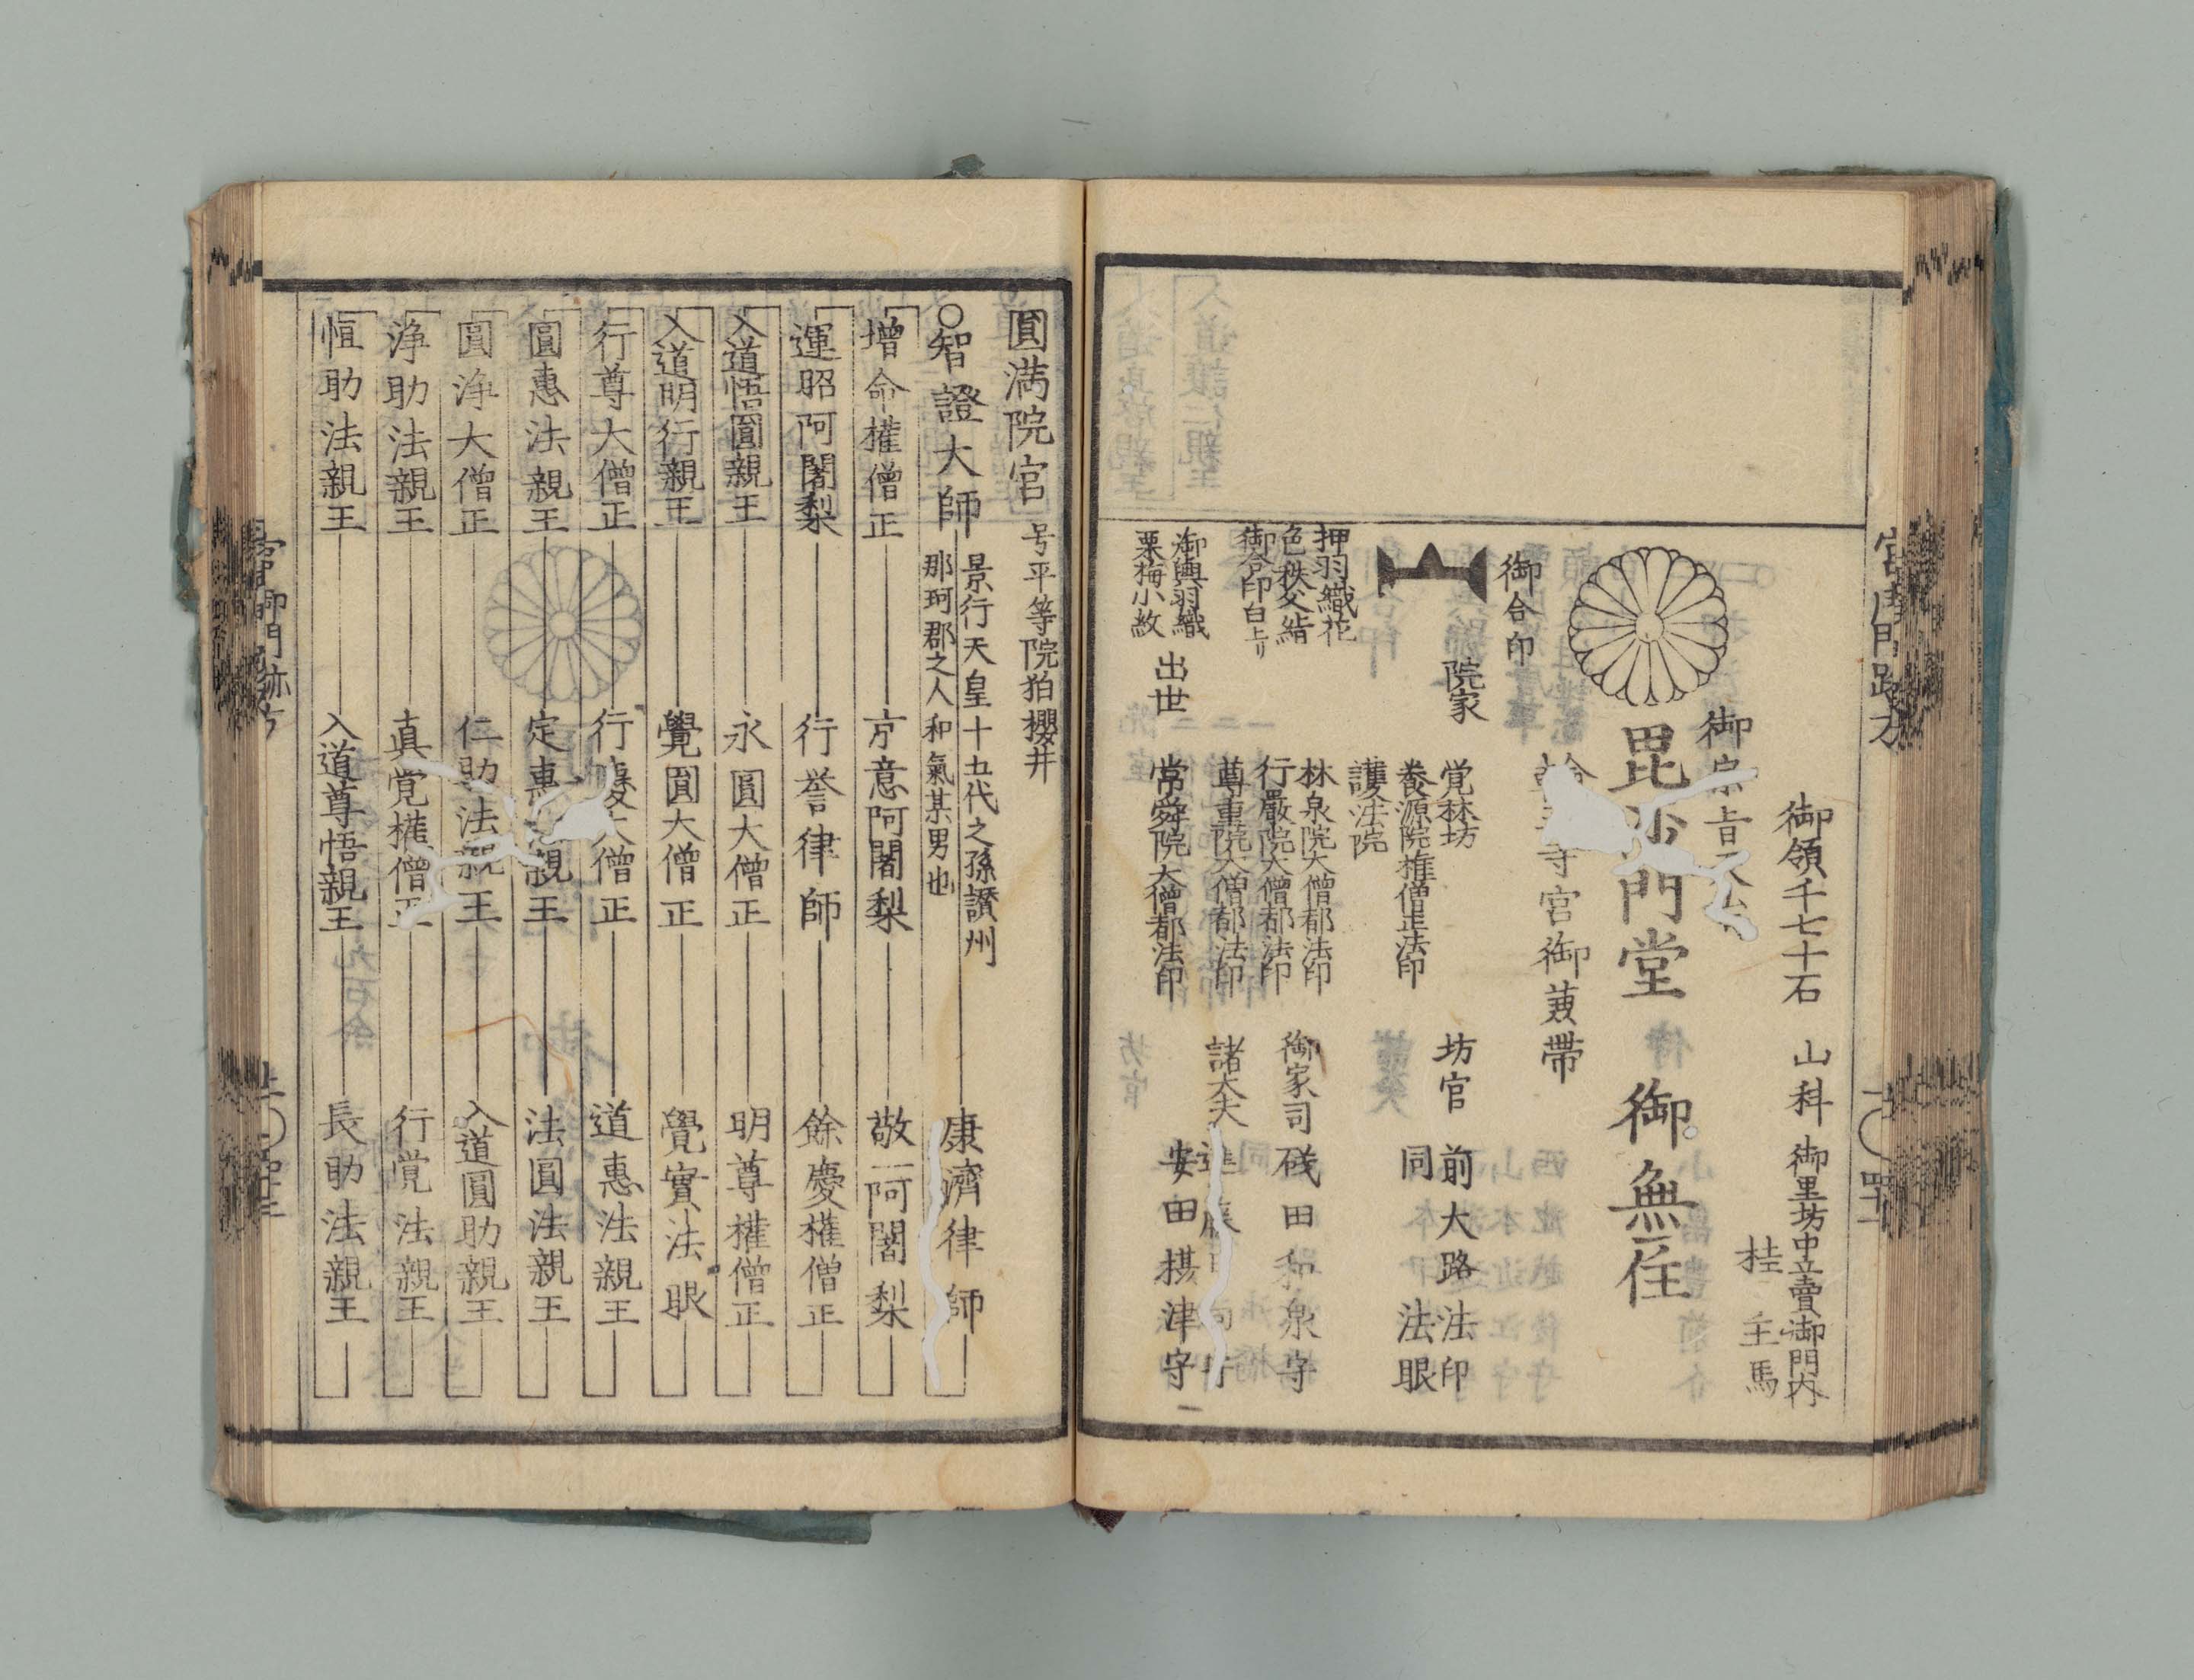 御領千七十石
山科
御里坊中立賣御門内
桂主馬
御宗旨天台
毘沙門堂
御無住
寺宮御兼帯
御合印
院家
覚林坊
養源院権僧正法印
護法院
坊官
前大路法印
同
法眼
押羽織花
色秩父絹
御合印白上リ
御輿羽織
栗梅小紋
出世
林泉院大僧都法印
行嚴院大僧都法印
尊重院大僧都法印
常舜院大僧都法印
御家司
磯田和泉守
諸大夫
進藤
守
安田摂津守
圓満院宮
号平等院狛櫻井
○智證大師
景行天皇十五代之孫讃州
那珂郡之人和氣某男也
康濟律師
増命權僧正
京意阿闍梨
敬一阿闍梨
運昭阿闍梨
行誉律師
餘慶權僧正
入道悟圓親王
永圓大僧正
明尊權僧正
入道明行親王
覺圓大僧正
覺實法眼
行尊大僧正
行慶大僧正
道惠法親王
圓惠法親王
定惠法親王
法圓法親王
圓浄大僧正
仁助法親王
入道圓助親王
浄助法親王
真覚權僧正
行覚法親王
恒助法親王
入道尊悟親王
長助法親王